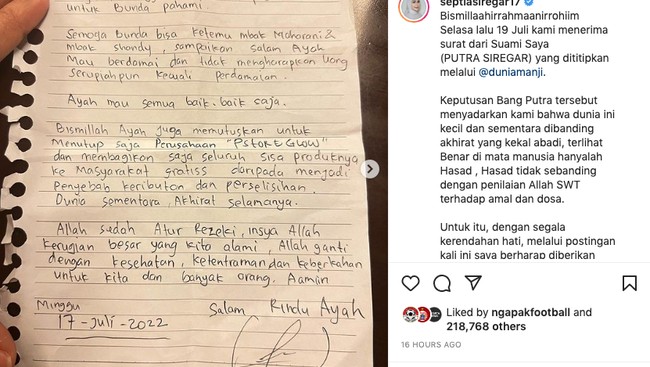 untuk Bunda pahami.
Semoga bunda bisa ketemu mbak Maharani &
mbak Shandy, sampaikan salam Ayah
Mau berdamai dan tidak mengharapkan Uang
serupiahpun kecuali perdamaian.
Ayah mau semua baik-baik saja.
Bismillah Ayah juga memutuskan untuk
Menutup saja Perusahaan "PSTORE GLOW"
dan membagikan saja seluruh sisa produknya
ke Masyarakat gratiss daripada menjadi
Penyebab keributan dan perselisihan.
Dunia sementara, Akhirat selamanya.
Allah sudah Atur Rezeki, insya Allah
kerugian besar yang kita alami, Allah ganti
dengan kesehatan, ketentraman dan keberkahan
untuk kita dan banyak orang. Aamiin
Minggu
17-Juli-2022
Salam Rindu Ayah
septiasiregar17
Bismillaahirrahmaanirrohiim
Selasa lalu 19 Juli kami menerima
surat dari Suami Saya
(PUTRA SIREGAR) yang dititipkan
melalui @duniamanji.
Keputusan Bang Putra tersebut
menyadarkan kami bahwa dunia ini
kecil dan sementara dibanding
akhirat yang kekal abadi, terlihat
Benar di mata manusia hanyalah
Hasad , Hasad tidak sebanding
dengan penilaian Allah SWT
terhadap amal dan dosa.
Untuk itu, dengan segala
kerendahan hati, melalui postingan
kali ini saya berharap diberikan
Liked by ngapakfootball and
218,768 others
16 HOURS AGO